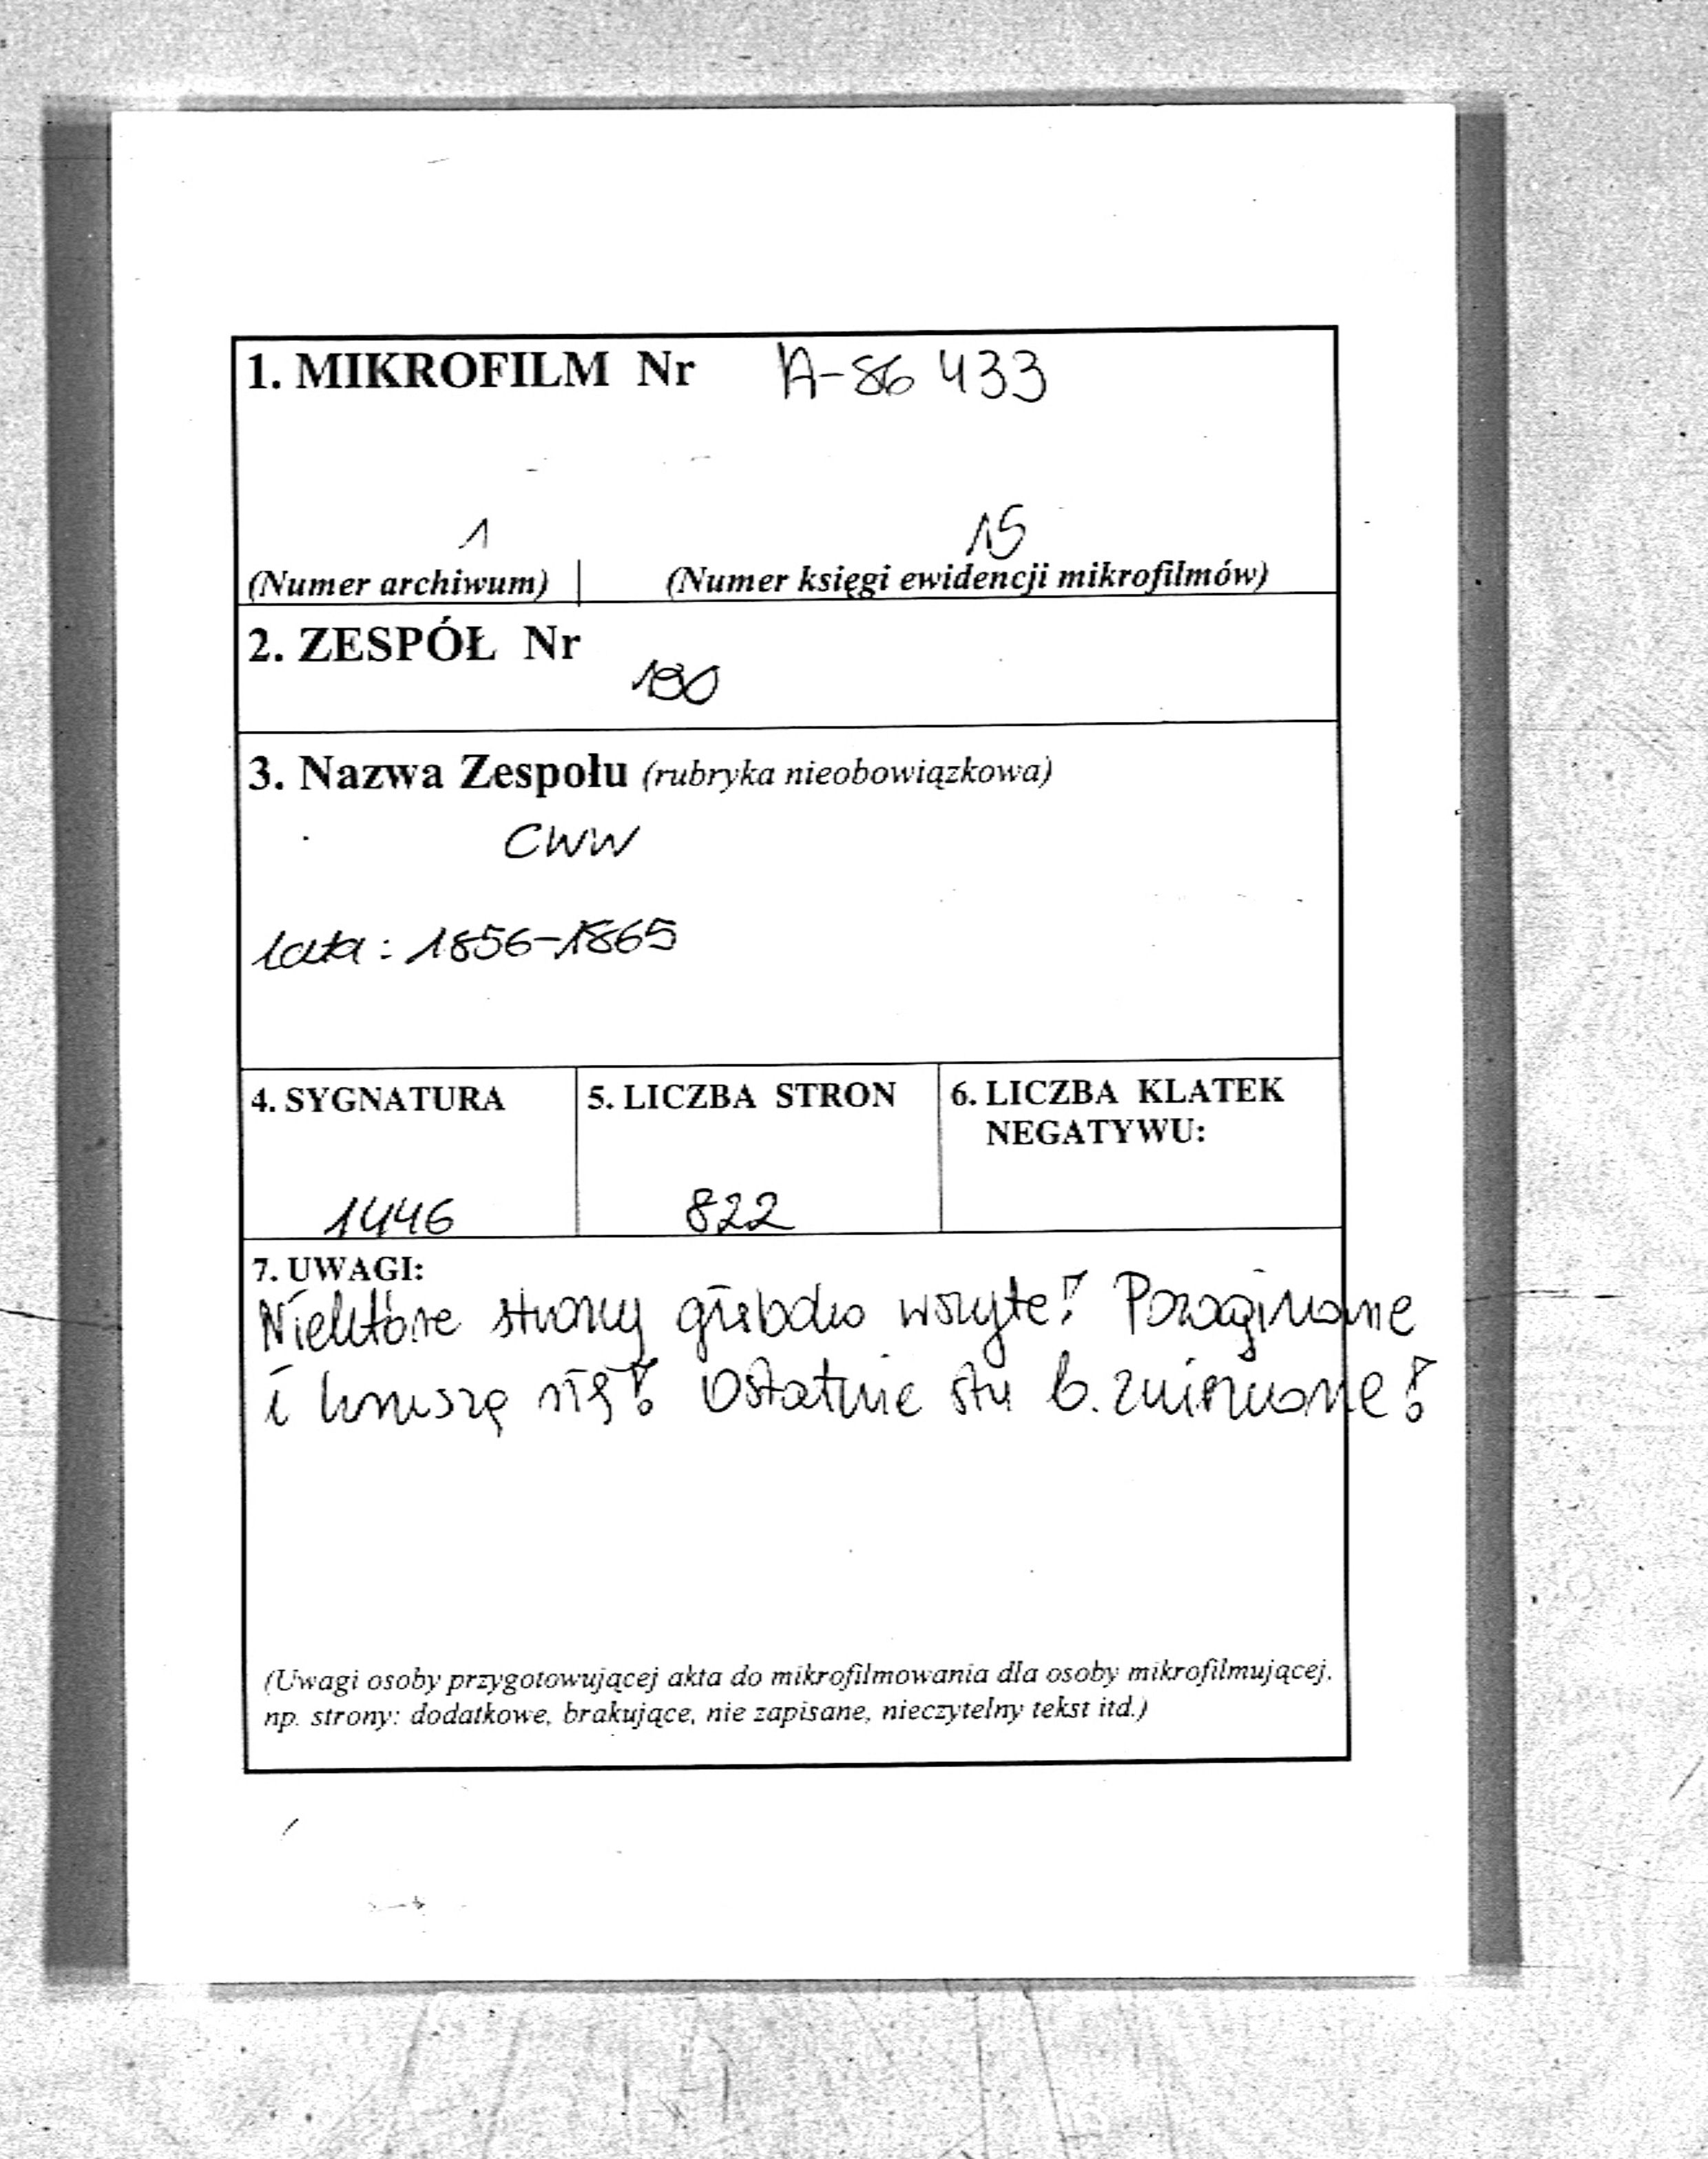 1. MIKROFILM Nr A-86 433
1 15
(Numer archiwum) (Numer księgi ewidencji mikrofilmów)
2. ZESPÓŁ Nr
190
3. Nazwa Zespołu (rubryka nieobowiązkowa)
CWW
lata: 1856-1865
4. SYGNATURA 5. LICZBA STRON 6. LICZBA KLATEK
NEGATYWU:
1446 822
7. UWAGI:
Niektóre strony głęboko wszyte! Pozaginane
i kruszą się! Ostatnie str b. zniszczone!
(Uwagi osoby przygotowującej akta do mikrofilmowania dla osoby mikrofilmującej.
np. strony: dodatkowe, brakujące, nie zapisane, nieczytelny tekst itd.)